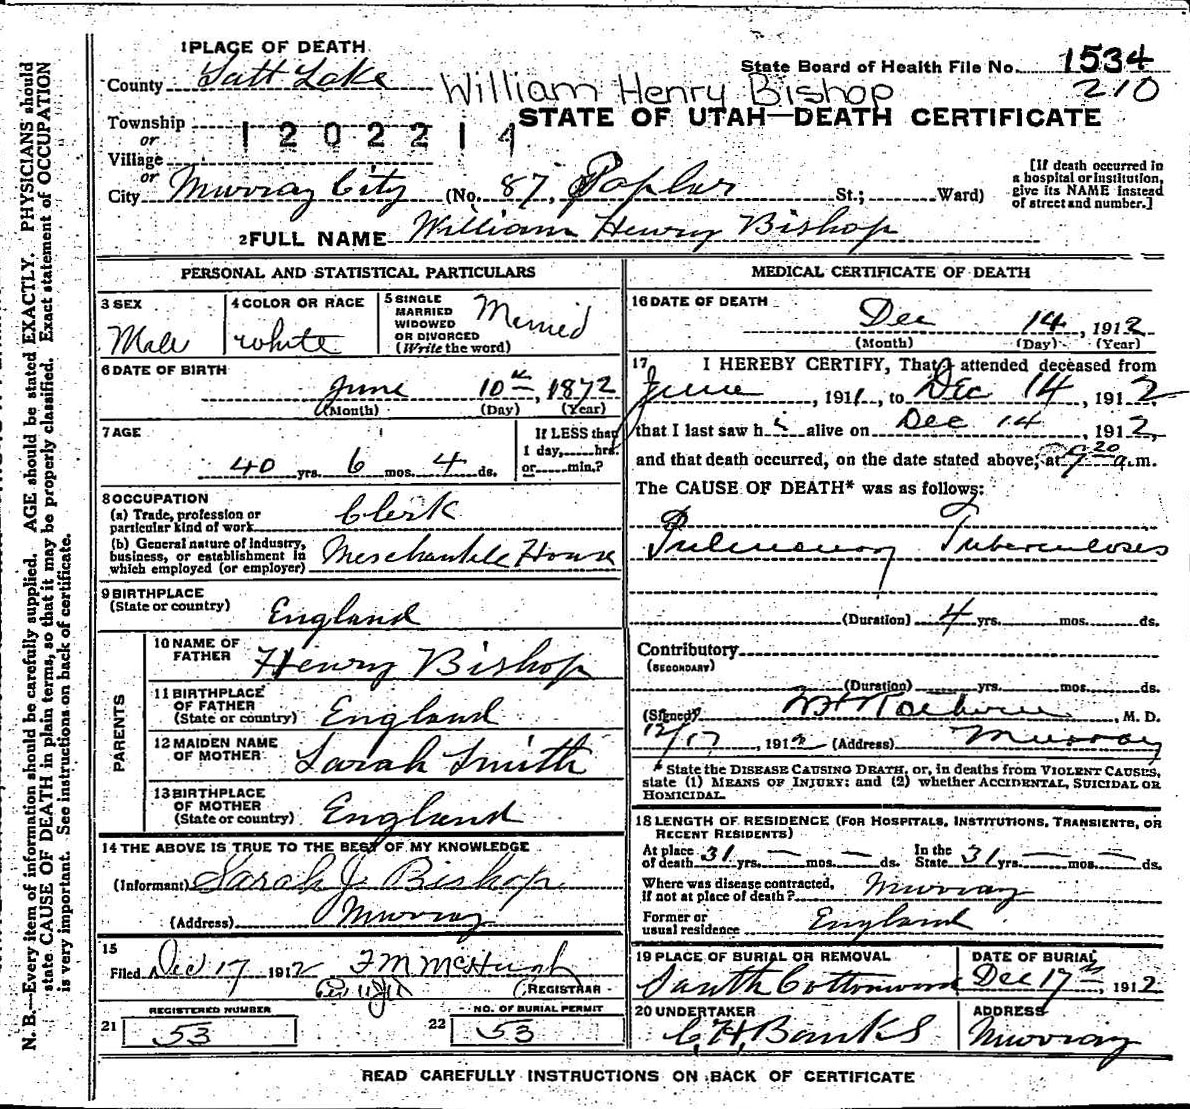 1 PLACE OF DEATH
County Salt Lake
State Board of Health File No. 1534
210
William Henry Bishop
STATE OF UTAH—DEATH CERTIFICATE
Township
or
Village
1202214
or
City Murray City (No. 87, Poplar St.; Ward)
[If death occurred in a hospital or institution, give its NAME instead of street and number.]
2 FULL NAME William Henry Bishop
PERSONAL AND STATISTICAL PARTICULARS
3 SEX
Male
4 COLOR OR RACE
White
5 SINGLE MARRIED WIDOWED OR DIVORCED (Write the word)
Married
6 DATE OF BIRTH
June 10th, 1872
(Month) (Day) (Year)
7 AGE
40 yrs. 6 mos. 4 ds.
If LESS than 1 day, hrs. or min.?
8 OCCUPATION
(a) Trade, profession or particular kind of work
Clerk
(b) General nature of industry, business, or establishment in which employed (or employer)
Merchantile House
9 BIRTHPLACE
(State or country)
England
PARENTS
10 NAME OF FATHER
Henry Bishop
11 BIRTHPLACE OF FATHER
(State or country)
England
12 MAIDEN NAME OF MOTHER
Sarah Smith
13 BIRTHPLACE OF MOTHER
(State or country)
England
14 THE ABOVE IS TRUE TO THE BEST OF MY KNOWLEDGE
(Informant) Sarah J Bishop
(Address) Murray
15
Filed Dec 17 1912 F M McHugh
REGISTRAR
REGISTERED NUMBER
21 53
NO. OF BURIAL PERMIT
22 53
MEDICAL CERTIFICATE OF DEATH
16 DATE OF DEATH
Dec 14, 1912
(Month) (Day) (Year)
17 I HEREBY CERTIFY, That I attended deceased from
June, 1911, to Dec 14, 1912
that I last saw hi alive on Dec 14, 1912,
and that death occurred, on the date stated above, at 9 20 a.m.
The CAUSE OF DEATH* was as follows:
Pulmonary Tuberculosis
(Duration) 4 yrs. mos. ds.
Contributory
(SECONDARY)
(Duration) yrs. mos. ds.
(Signed), M. D.
12/17, 1912 (Address) Murray
* State the DISEASE CAUSING DEATH, or, in deaths from VIOLENT CAUSES, state (1) MEANS OF INJURY; and (2) whether ACCIDENTAL, SUICIDAL OR HOMICIDAL.
18 LENGTH OF RESIDENCE (FOR HOSPITALS, INSTITUTIONS, TRANSIENTS, OR RECENT RESIDENTS)
At place of death 31 yrs. — mos. — ds. In the State 31 yrs. — mos. — ds.
Where was disease contracted, if not at place of death? Murray
Former or usual residence England
19 PLACE OF BURIAL OR REMOVAL
South Cottonwood
DATE OF BURIAL
Dec 17th, 1912
20 UNDERTAKER
C. H. Banks
ADDRESS
Murray
READ CAREFULLY INSTRUCTIONS ON BACK OF CERTIFICATE
N. B.—Every item of information should be carefully supplied. AGE should be stated EXACTLY. PHYSICIANS should
state CAUSE OF DEATH in plain terms, so that it may be properly classified. Exact statement of OCCUPATION
is very important. See instructions on back of certificate.